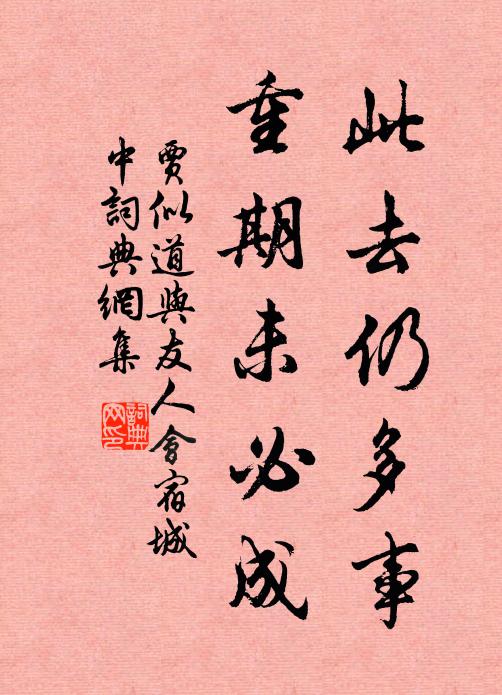 此去仍多事
重期未必成
賈似道與友人會宿城
中詞典網集
詞典网印